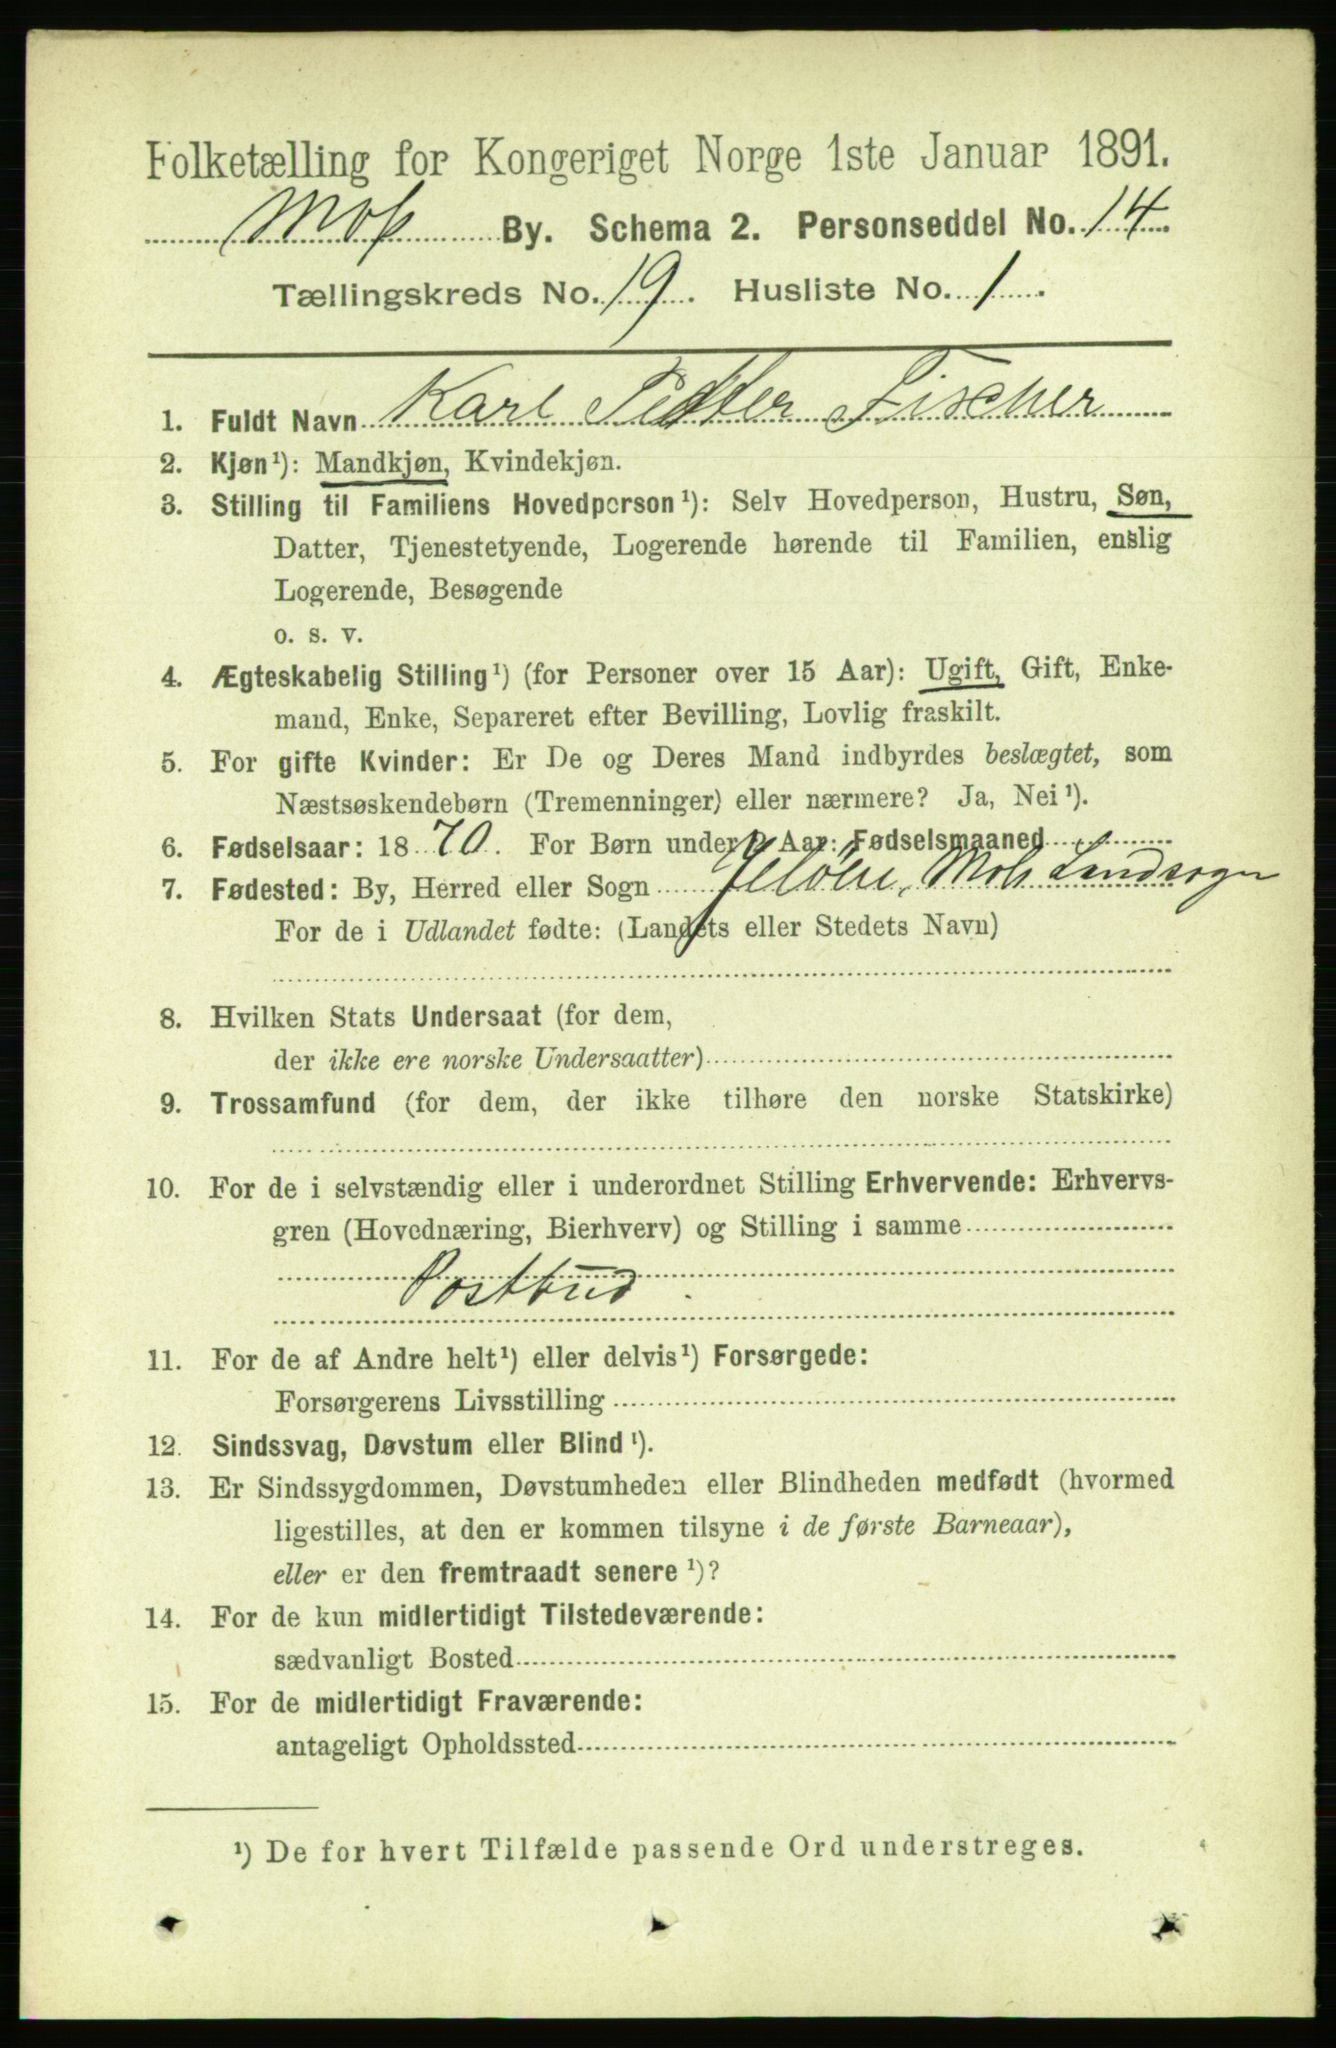 Folketælling for Kongeriget Norge 1ste Januar 1891.
Moss By. Schema 2. Personseddel No. 14
Tællingskreds No. 19. Husliste No. 1.
1. Fuldt Navn Karl Petter Fischer
2. Kjøn¹): Mandkjøn, Kvindekjøn.
3. Stilling til Familiens Hovedperson¹): Selv Hovedperson, Hustru, Søn,
Datter, Tjenestetyende, Logerende hørende til Familien, enslig
Logerende, Besøgende
o. s. v.
4. Ægteskabelig Stilling¹) (for Personer over 15 Aar): Ugift, Gift, Enke-
mand, Enke, Separeret efter Bevilling, Lovlig fraskilt.
5. For gifte Kvinder: Er De og Deres Mand indbyrdes beslægtet, som
Næstsøskendebørn (Tremenninger) eller nærmere? Ja, Nei¹).
6. Fødselsaar: 1870. For Børn under 2 Aar: Fødselsmaaned
7. Fødested: By, Herred eller Sogn Jeløen, Moss Landsogn
For de i Udlandet fødte: (Landets eller Stedets Navn)
8. Hvilken Stats Undersaat (for dem,
der ikke ere norske Undersaatter)
9. Trossamfund (for dem, der ikke tilhøre den norske Statskirke)
10. For de i selvstændig eller i underordnet Stilling Erhvervende: Erhvervs-
gren (Hovednæring, Bierhverv) og Stilling i samme
Postbud.
11. For de af Andre helt¹) eller delvis¹) Forsørgede:
Forsørgerens Livsstilling
12. Sindssvag, Døvstum eller Blind¹).
13. Er Sindssygdommen, Døvstumheden eller Blindheden medfødt (hvormed
ligestilles, at den er kommen tilsyne i de første Barneaar),
eller er den fremtraadt senere¹)?
14. For de kun midlertidigt Tilstedeværende:
sædvanligt Bosted
15. For de midlertidigt Fraværende:
antageligt Opholdssted
¹) De for hvert Tilfælde passende Ord understreges.